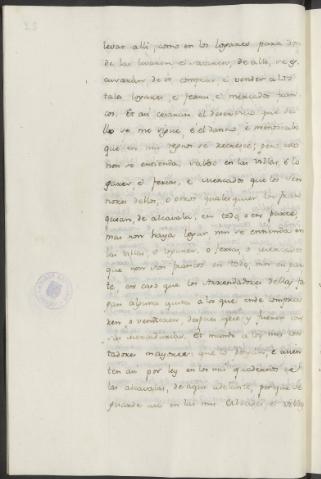 levar allí, como en los logares, para do
de las levaren, e sacaren, de allí, se es
cusarán de ir comprar e vender a los
tales logares, e ferias, e mercados fran
cos. Et así cesarán el deservicio que de
llo se me sigue, e el danno, e menoscabo
que en mis regnos se recresce; pero esto
non se entienda, salvo en las villas, e lo
gares, e ferias, e mercados que los Sen
nores dellos, o otros qualesquier los fran
quean, de alcavala, en todo, o en parte,
mas non haya logar nin se entienda en
las villas, o logares, o ferias, o mercados
que non son francos en todo, nin en par
te, en caso que los Arrendadores dellas fa
gan alguna quita a los que ende compra
ren, o vendieren
sus mercadurías. Et mando a los mis con
tadores mayores que lo pongan, e asien
ten así por ley en los mis quadernos de
las alcavalas, de aquí adelante, porque se
guarde así en las mis Cibdades, e Villas